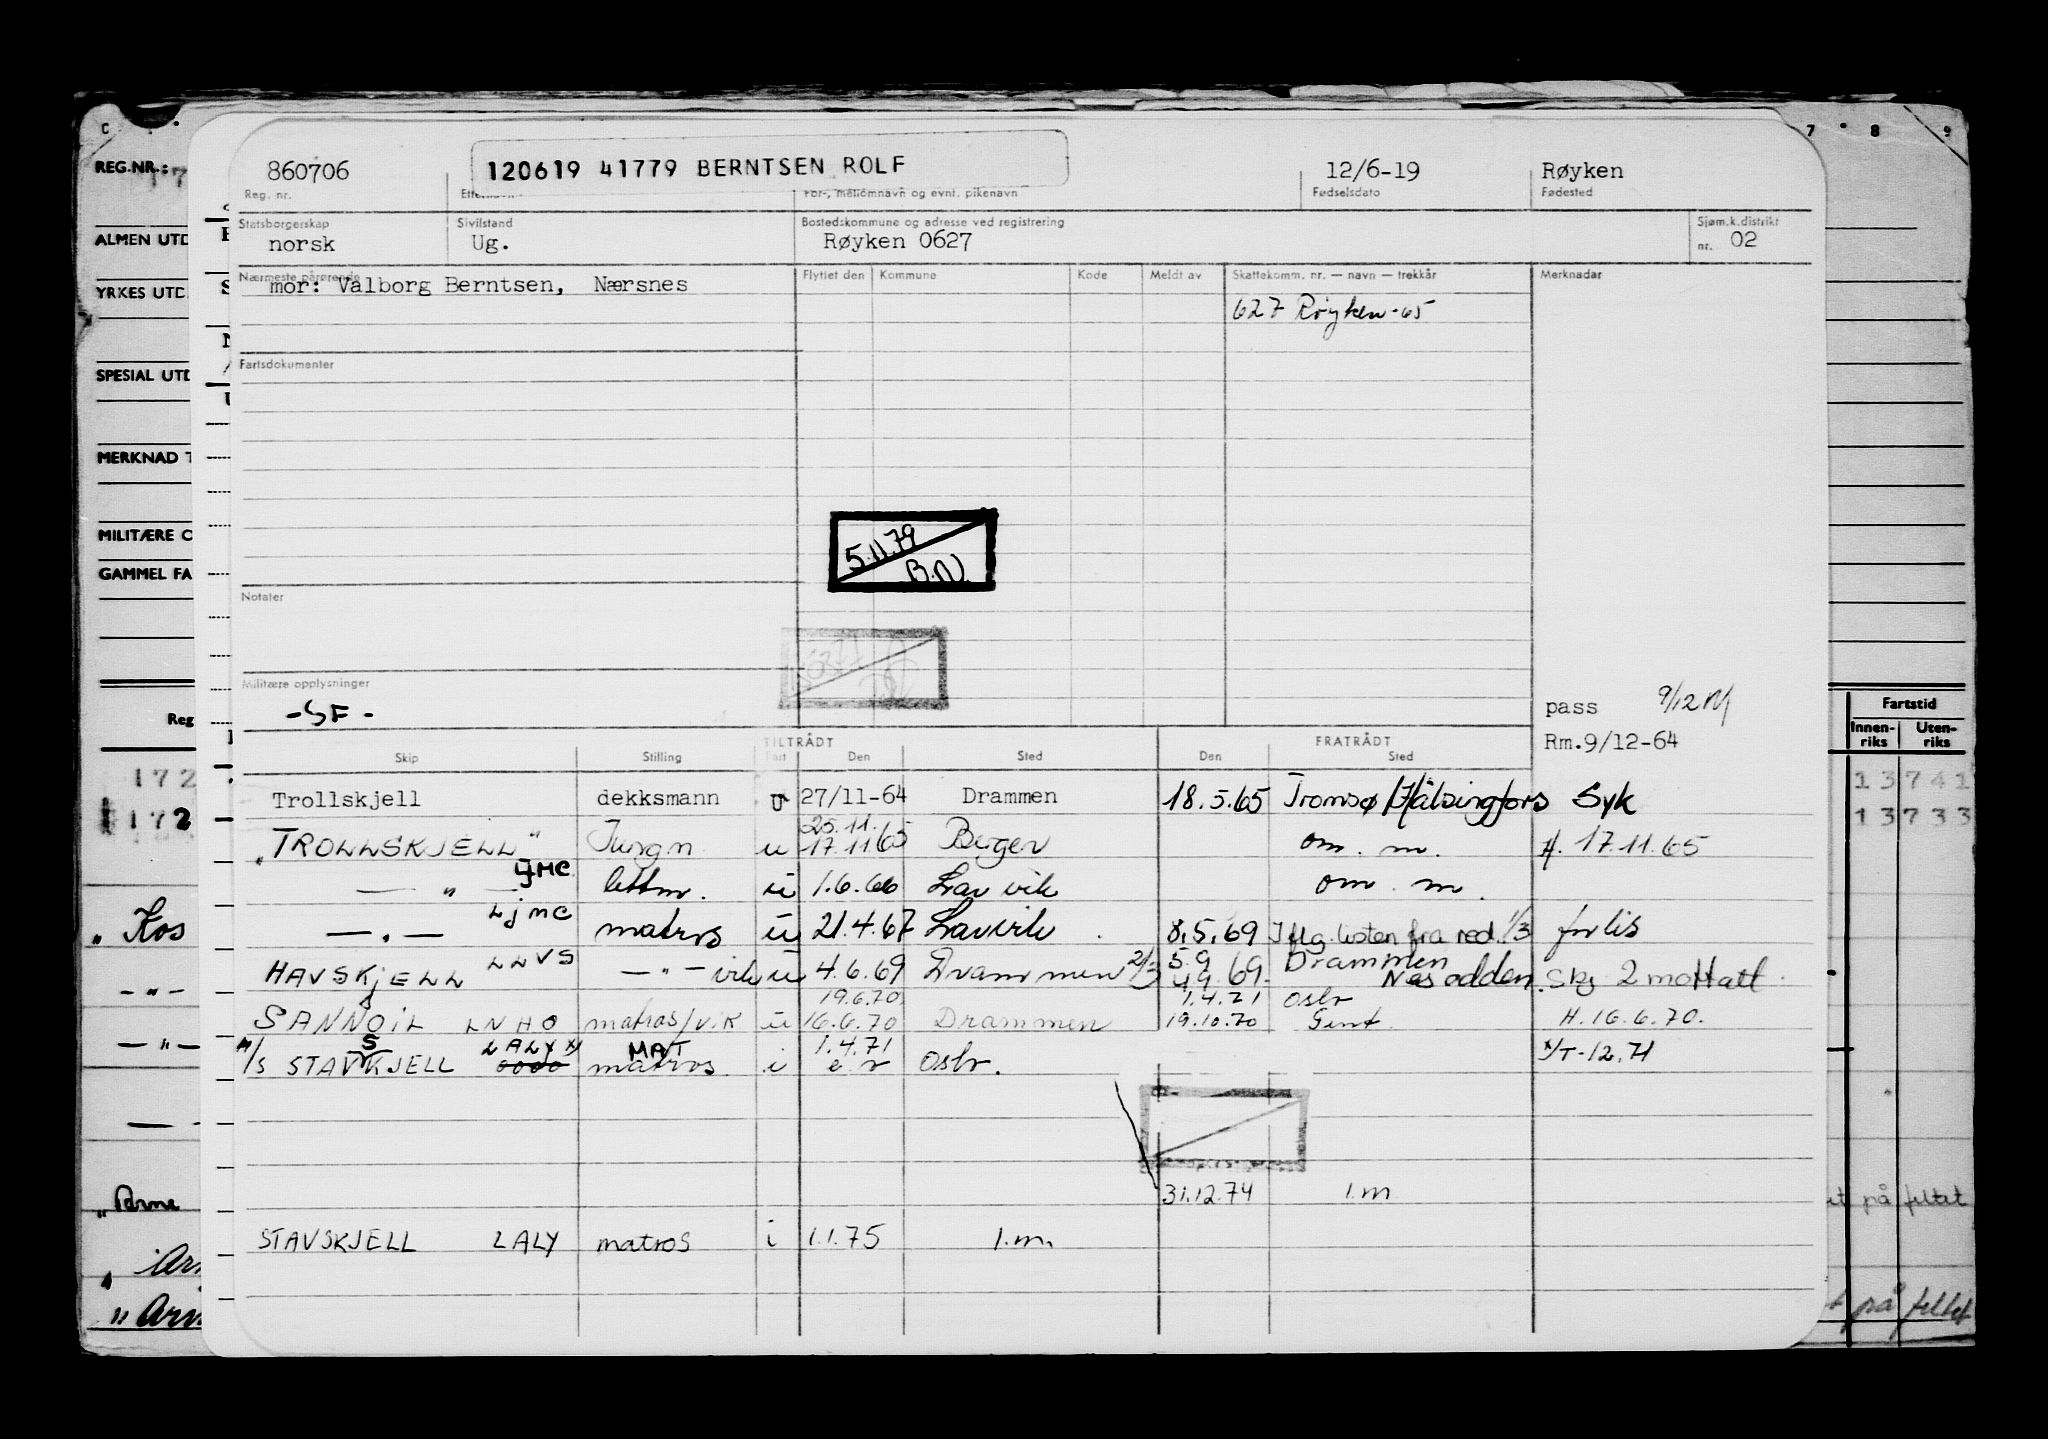 C 7 8 9
REG.NR.: 17
860706 120619 41779 BERNTSEN ROLF 12/6-19 Røyken
Reg. nr. For-, mellomnavn og evnt. pikenavn Fødselsdato Fødested
Statsborgerskap Sivilstand Bostedskommune og adresse ved registrering Sjøm.k.distrikt
ALMEN UTD norsk Ug. Røyken 0627 nr. 02
Nærmeste pårørende Flyttet den Kommune Kode Meldt av Skattekomm. nr. — navn — trekkår Merknader
YRKES UTD. mor: Valborg Berntsen, Nærsnes
627 Røyken-65
SPESIAL UTD Fartsdokumenter
MERKNAD T
MILITÆRE O
5.11.79
GAMMEL FA B.N.
Notater
Militære opplysninger
pass 9/12
Reg Fartstid
Innen-riks Uten-riks
TILTRÅDT FRATRÅDT Rm.9/12-64
Skip Stilling Fart Den Sted Den Sted
172 13741
Trollskjell dekksmann 27/11-64 Drammen 18.5.65 Tromsø/Hälsingfors Syk
172 13733
25.11.
"TROLLSKJELL" Jungm u 17.11.65 Bergen om. m. H. 17.11.65
LJMC
— " — lettm. u 1.6.66 Lavvik om. m.
LJMC
" Kos — " — matros u 21.4.67 Lavvik 8.5.69 Iflg. listen fra red. 1/3 forlis
LLVS 5.9 Drammen
HAVSKJELL — " — vik u 4.6.69 Drammen 2/3 4.9.69. Nesodden. Skj 2 mottatt.
— " —
19.6.70 1.4.71 Oslo
SANNOIL LNHO matros/vik u 16.6.70 Drammen 19.10.70 Gent. H. 16.6.70.
— " —
S LALY x/ MAT 1.4.71 x/T-12.71
M/S STAVSKJELL matros. i Oslo.
31.12.74 1.m
" Perne på feltet
STAVSKJELL LALY matros i 1.1.75 1.m.
på feltet